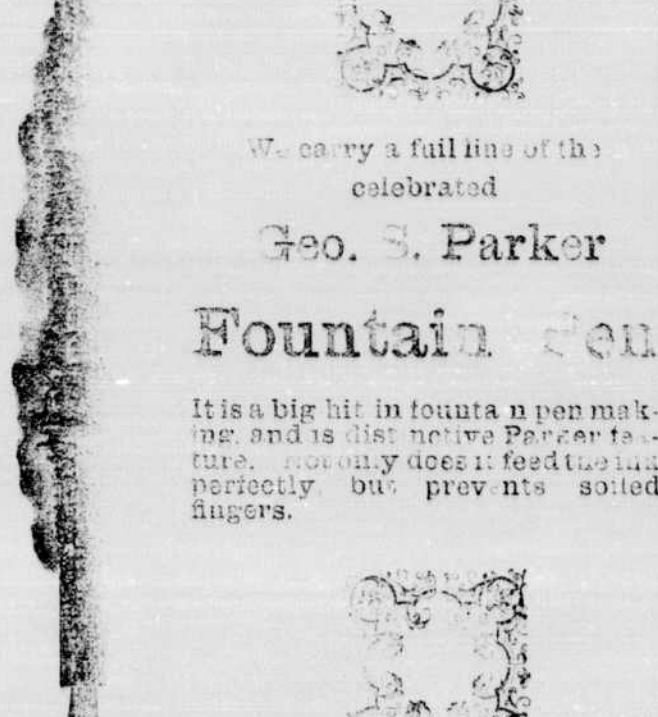 We carry a full line of the
celebrated
Geo. S. Parker
Fountain Pen
It is a big hit in fountain pen mak-
ing, and is distinctive Parker fea-
ture. Not only does it feed the ink
perfectly, but prevents soiled
fingers.